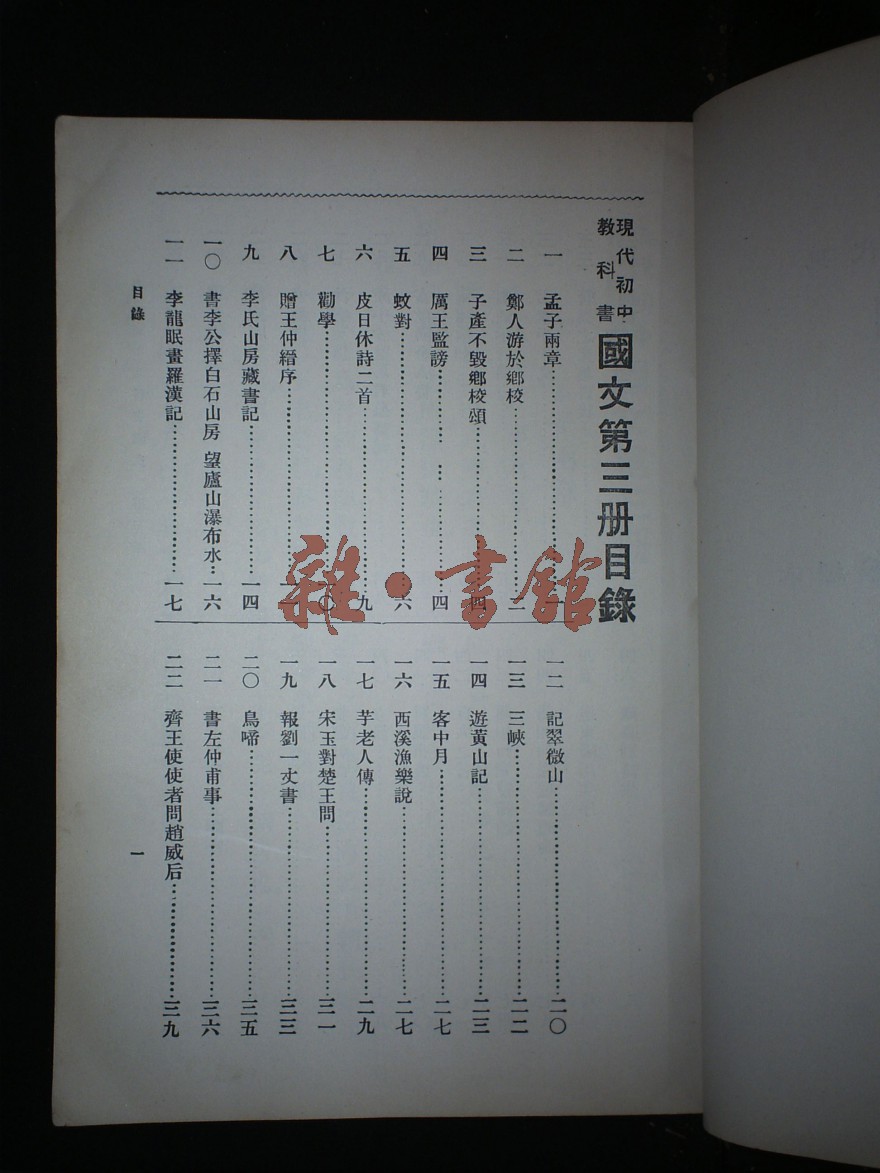 現代初中
教科書
國文第三册目錄
一 孟子兩章
二 鄭人游於鄉校 二
三 子產不毀鄉校頌 四
四 厲王監謗 四
五 蚊對 六
六 皮日休詩二首 九
七 勸學 一〇
八 贈王仲縉序
九 李氏山房藏書記 一四
一〇 書李公擇白石山房 望廬山瀑布水 一六
一一 李龍眠畫羅漢記 一七
一二 記翠微山 二〇
一三 三峽 二二
一四 遊黃山記 二三
一五 客中月 二七
一六 西溪漁樂說 二七
一七 芋老人傳 二九
一八 宋玉對楚王問 三一
一九 報劉一丈書 三三
二〇 鳥啼 三五
二一 書左仲甫事 三六
二二 齊王使使者問趙威后 三九
目錄
一
雜·書館